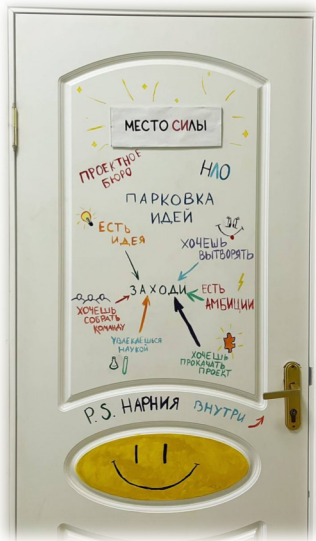 МЕСТО СИЛЫ
ПРОЕКТНОЕ
БЮРО
НЛО
ПАРКОВКА
ИДЕЙ
ЕСТЬ
ИДЕЯ
ХОЧЕШЬ
ВЫТВОРЯТЬ
ЗАХОДИ
ЕСТЬ
АМБИЦИИ
ХОЧЕШЬ
СОБРАТЬ
КОМАНДУ
УВЛЕКАЕШЬСЯ
НАУКОЙ
ХОЧЕШЬ
ПРОКАЧАТЬ
ПРОЕКТ
P.S. НАРНИЯ ВНУТРИ